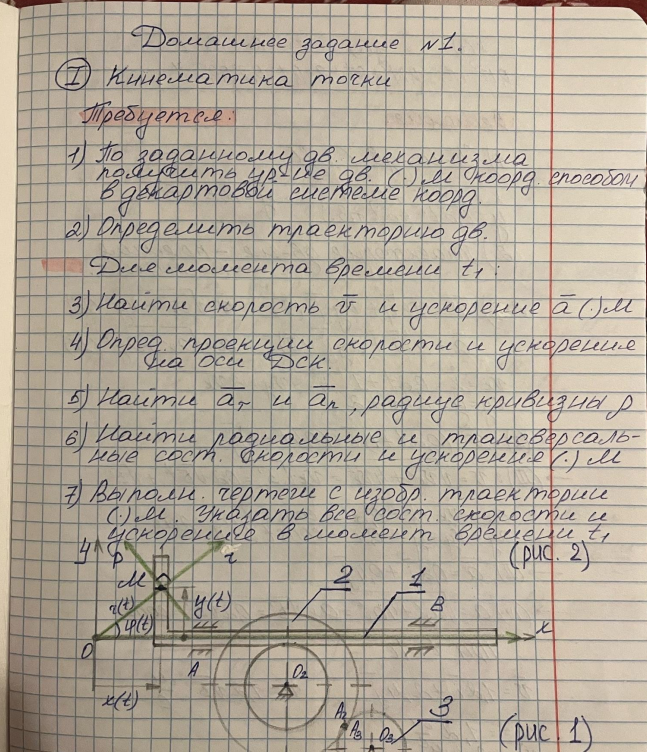 Домашнее задание №1.
I Кинематика точки
Требуется:
1) По заданному дв. механизма
получить ур-ие дв. (·) М коорд. способом
в декартовой системе коорд.
2) Определить траекторию дв.
Для момента времени t₁:
3) Найти скорость v̄ и ускорение ā (·) М
4) Опред. проекции скорости и ускорения
на оси Дск.
5) Найти ā_τ и ā_n, радиус кривизны ρ
6) Найти радиальные и трансверсаль-
ные сост. скорости и ускорения (·) М
7) Выполн. чертеж с изобр. траектории
(·) М. Указать все сост. скорости и
ускорение в момент времени t₁
(рис. 2)
y p r
M 2 1
r(t) y(t) B
φ(t) x
O A O₂
x(t)
A₂ 3
A₃ O₃
(рис. 1)